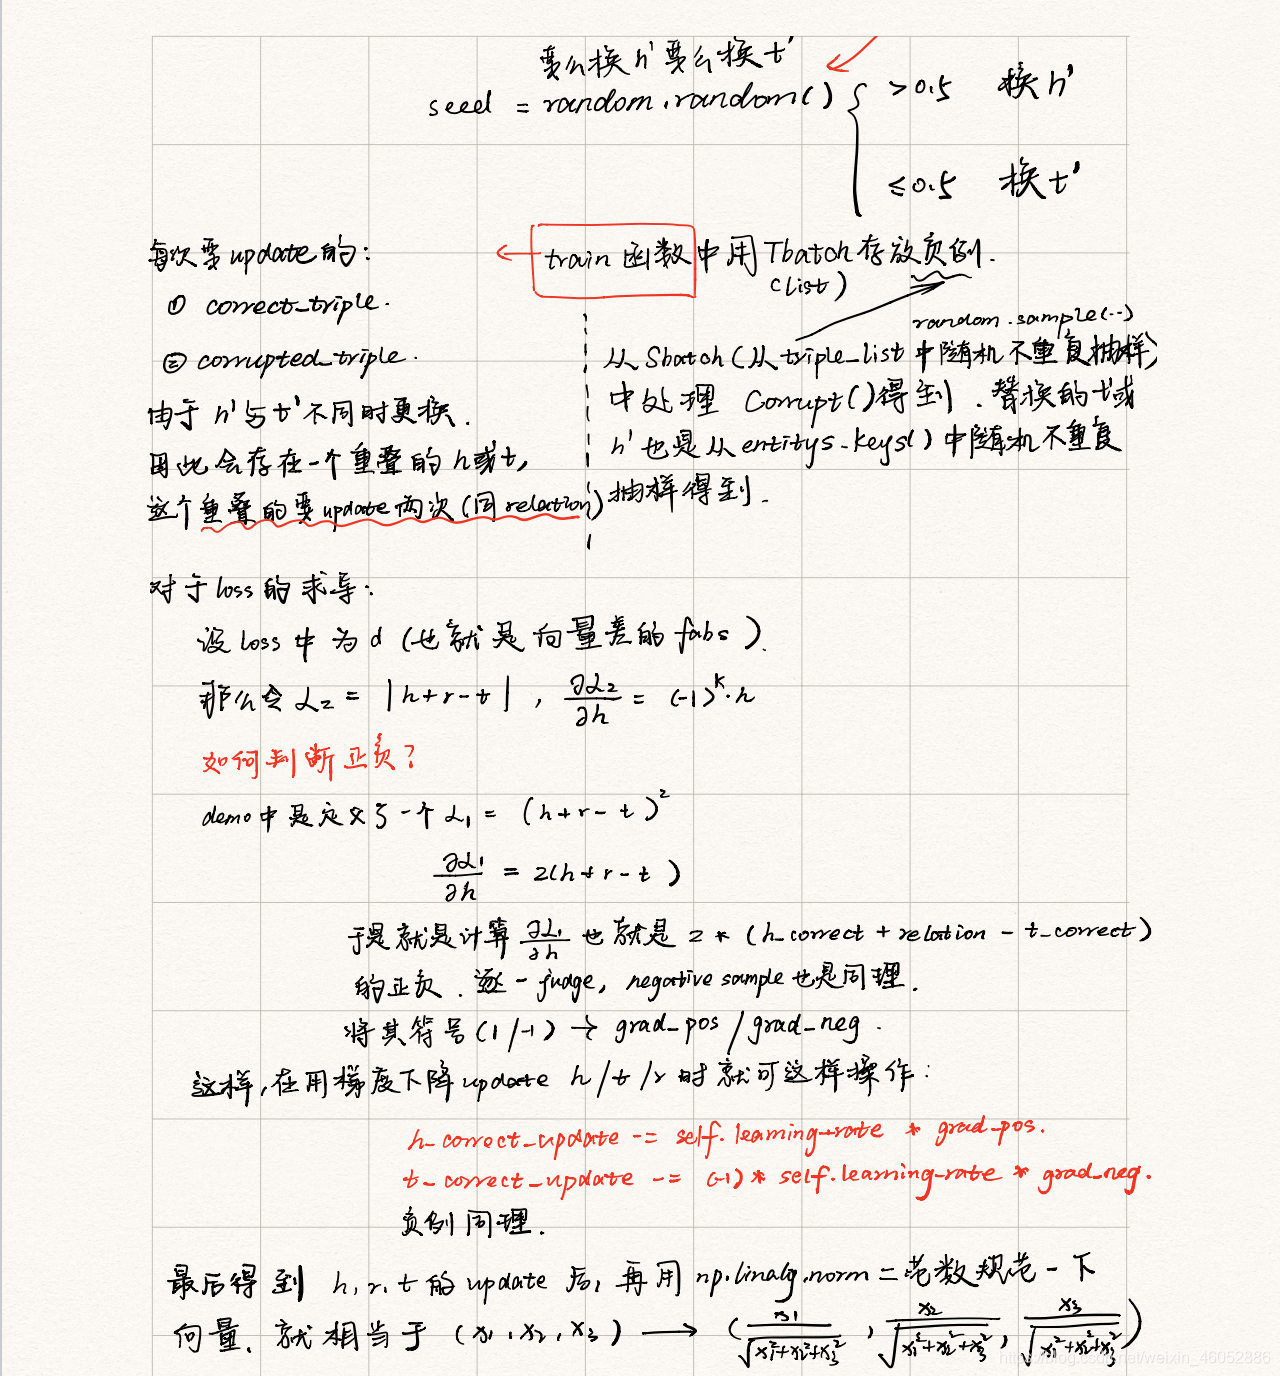 要么换h'要么换t'
seed = random.random() { >0.5 换h'
≤0.5 换t'
每次要update的:
① correct_triple.
② corrupted_triple.
由于h'与t'不同时更换.
因此会存在一个重叠的h或t,
这个重叠的要update两次(同relation)
train函数中用Tbatch存放负例.
(list)
random.sample(..)
从Sbatch(从triple_list中随机不重复抽样)
中处理 Corrupt()得到. 替换的t'或
h'也是从entitys.keys()中随机不重复
抽样得到.
对于loss的求导:
设loss中为d(也就是向量差的fabs).
那么令L2 = |h+r-t|, ∂L2/∂h = (-1)^k·h
如何判断正负?
demo中是定义了一个L1 = (h+r-t)^2
∂L1/∂h = 2(h+r-t)
于是就是计算∂L1/∂h也就是2*(h_correct + relation - t_correct)
的正负. 逐一judge, negative sample也是同理.
将其符号(1/-1) → grad_pos/grad_neg.
这样,在用梯度下降update h/t/r时就可这样操作:
h_correct_update -= self.learning_rate * grad_pos.
t_correct_update -= (-1)* self.learning_rate * grad_neg.
负例同理.
最后得到h,r,t的update后,再用np.linalg.norm二范数规范一下
向量. 就相当于(x1,x2,x3) → (x1/√(x1²+x2²+x3²), x2/√(x1²+x2²+x3²), x3/√(x1²+x2²+x3²))
https://blog.csdn.net/weixin_46052886